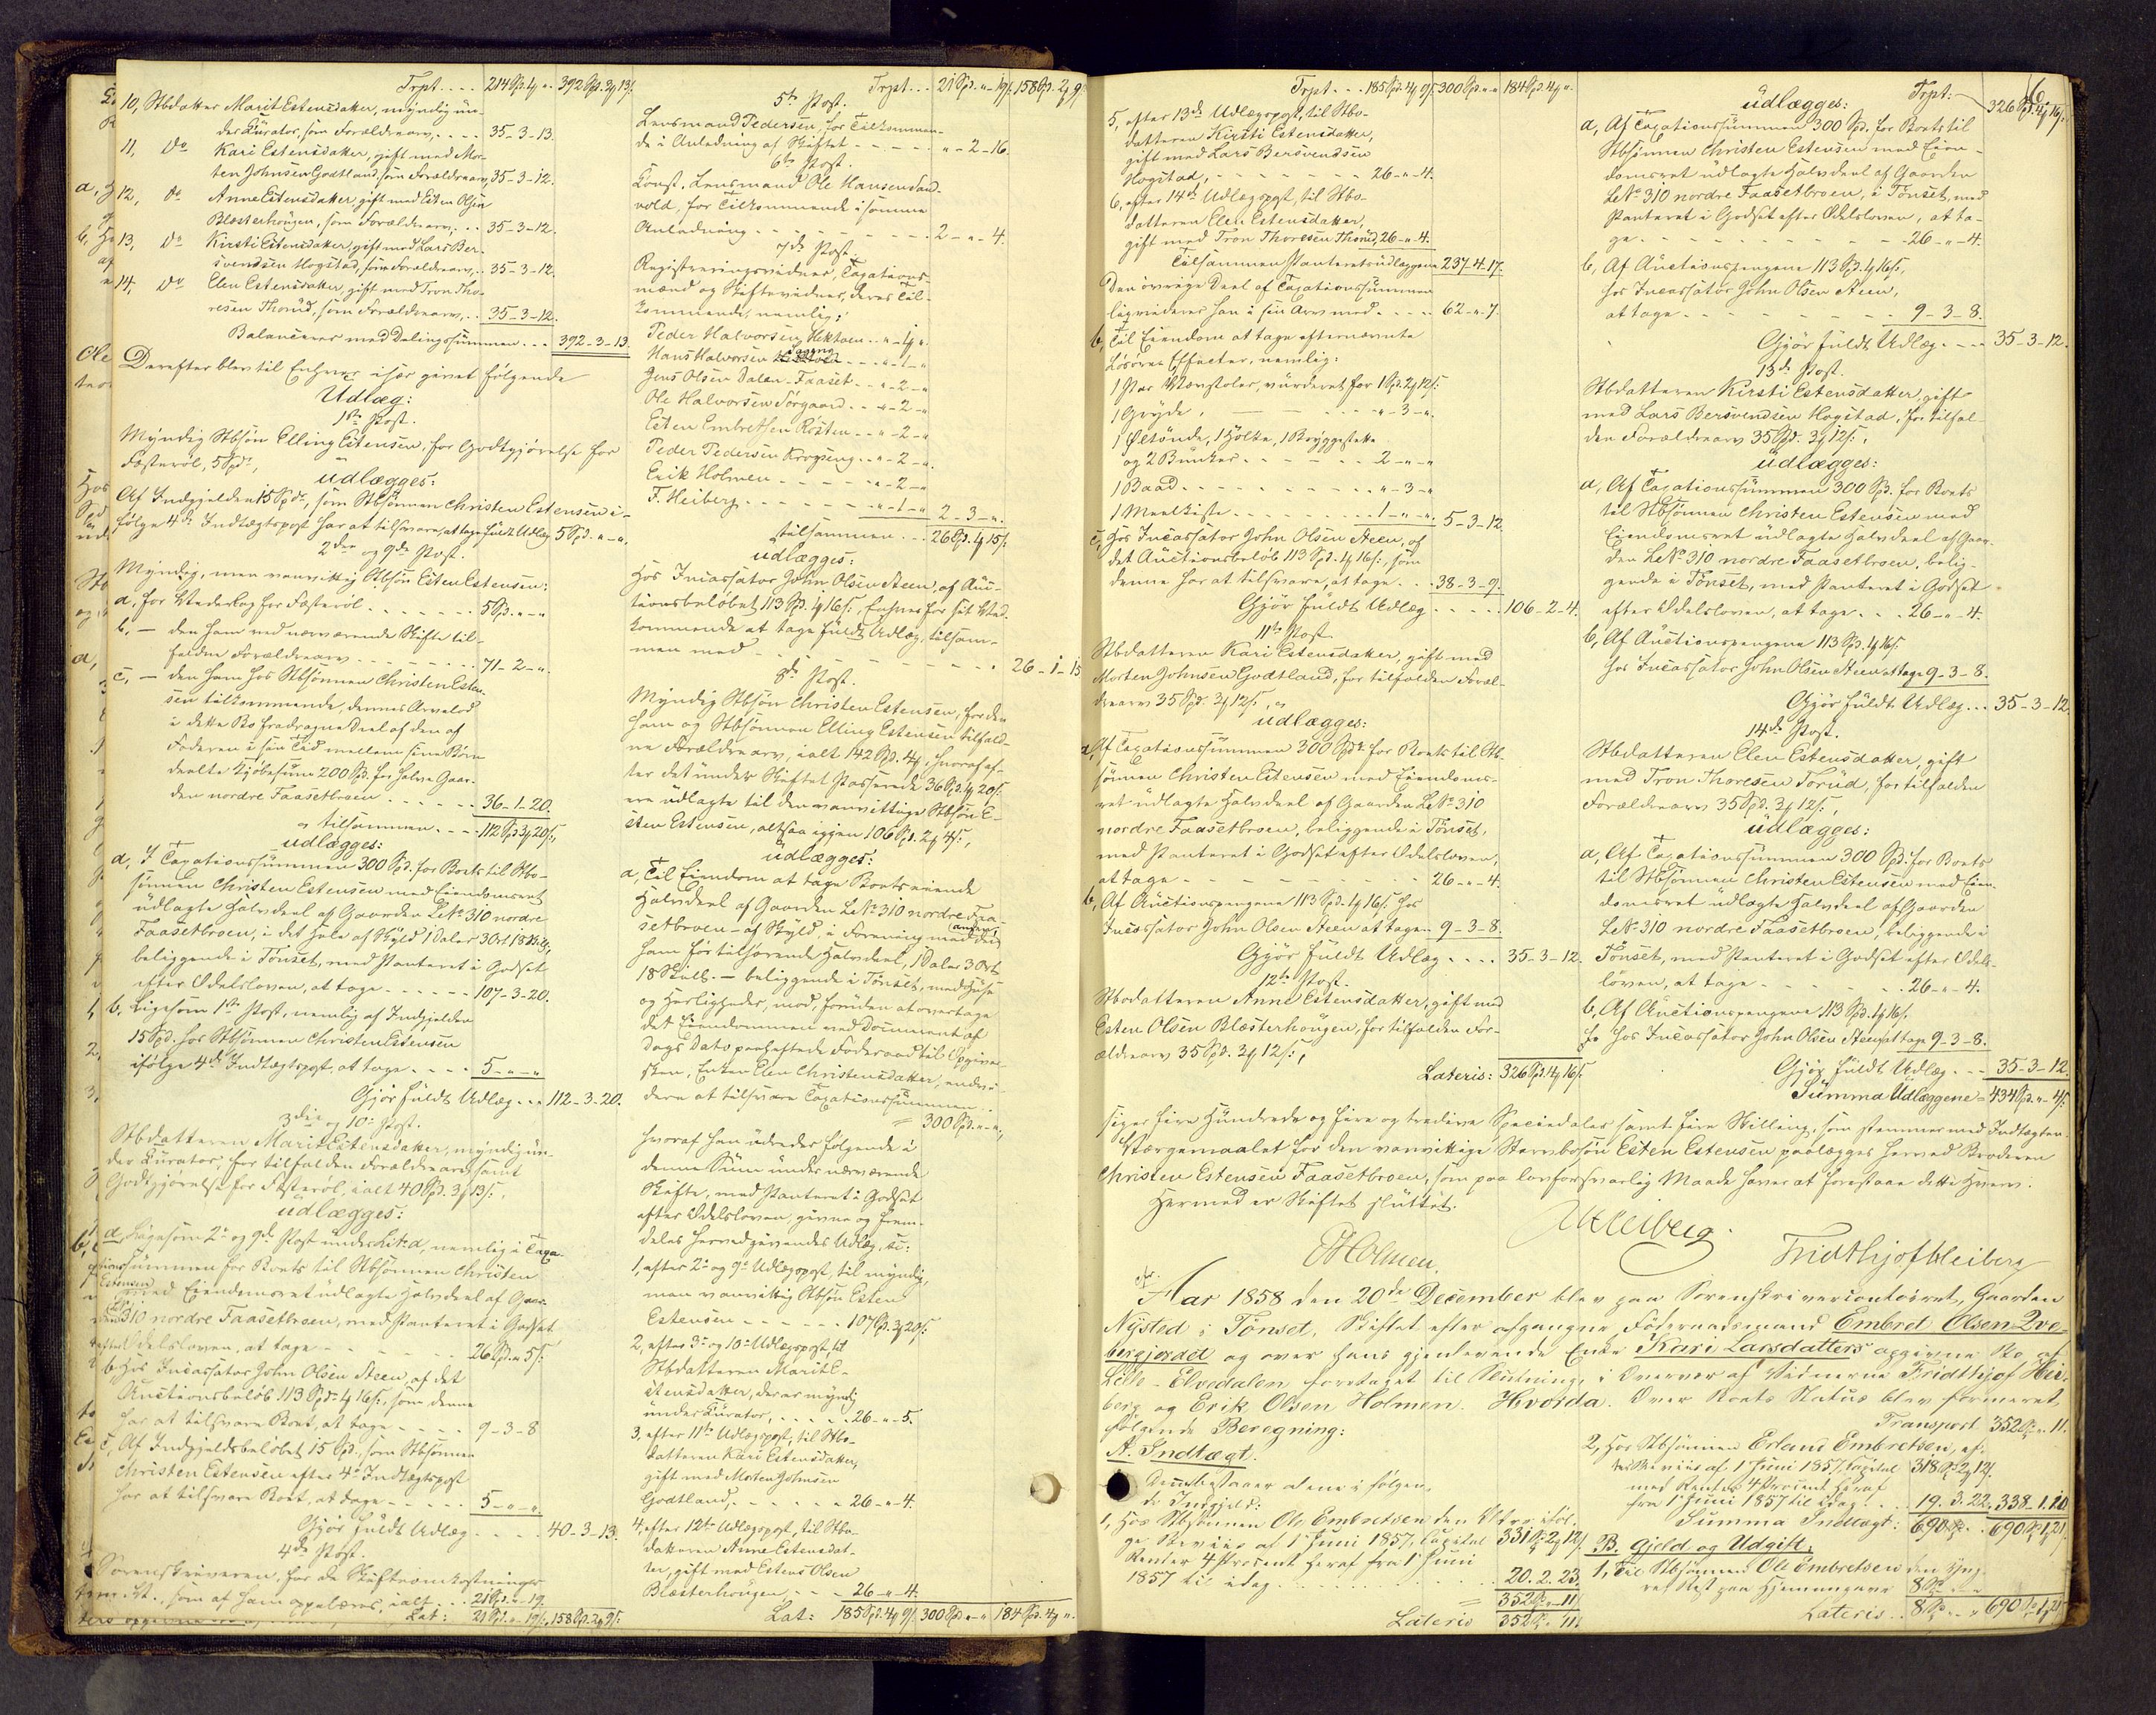 Trpt. . . . 214 Spd. 4 „ 392 Spd. 3 13 ſ.
10, Stbdatter Marit Estensdatter, myndig un-
der Kurator, som Forældrearv, . . . . 35-3-13.
11, Do Kari Estensdatter, gift med Mor-
ten Johnsen Godtland, som Forældrearv, 35-3-12.
12, do Anne Estensdatter, gift med Esten Olsen
Blæsterhougen, som Forældrearv, . . . 35-3-12.
13, Do Kirsti Estensdatter, gift med Lars Ber-
svendsen Hogstad, som Forældrearv, . . 35-3-12.
14, Do Elen Estensdatter, gift med Tron Tho-
resen Thorud, som Forældrearv, . . 35-3-12.
Balancerer med Delingssummen . . . 392-3-13
Derefter blev til Enhver især givet følgende
Udlæg:
1ste Post.
Myndig Stbsøn Elling Estensen, for Godtgjørelse for
Fæsterøl, 5 Spdr,
udlægges:
Af Indgjelden 15 Spdr, som Stbsønnen Christen Estensen i-
følge 4de Indtægtspost har at tilsvare, at tage fuldt Udlæg 5 Spd. „-„.
2den og 9de Post.
Myndig, men vanvittig Stbsøn Esten Estensen:
a, for Vederlag for Fæsterøl . . . . . . . 5 Spd. „-„
b, — den ham ved nærværende Skifte til-
falden Forældrearv . . . . . . . . 71-2-„.
c, — den ham hos Stbsønnen Christen Esten-
sen tilkommende, dennes Arvelod
i dette Bo fradragne Deel af den af
Faderen i sin Tid mellem sine Børn
deelte Kjøbesum 200 Spd. for halve Gaar-
den nordre Faasetbroen . . . . . . 36-1-20.
= tilsammen . . . 112 Spd 3 20 ſ.,
udlægges:
a, I Taxationssummen 300 Spd. for Boets til Stb-
sønnen Christen Estensen med Eiendomsret
udlagte Halvdeel af Gaarden LNo 310 nordre
Faasetbroen, i det Hele af Skyld 1 Daler 3 Ort 18 Skill,
beliggende i Tønset, med Panteret i Godset
efter Odelsloven, at tage . . . . . . 107-3-20.
b, Ligesom 1ste Post, nemlig af Indgjelden
15 Spd. hos Stbsønnen Christen Estensen
ifølge 4de Indtægtspost, at tage . . . . 5-„-„
Gjør fuldt Udlæg . . . 112-3-20.
3die og 10de Post.
Stbdatteren Marit Estensdatter, myndig un-
der Kurator, for tilfalden Forældrearv samt
Godtgjørelse for Fæsterøl, ialt 40 Spd. 3 13 ſ.,
udlægges:
a, Ligesom 2n og 9de Post under Lit: a, nemlig i Taxa-
tionssummen for Boets til Stbsønnen Christen
Estensen med Eiendomsret udlagte Halvdeel af Gaar-
den LNo 310 nordre Faasetbroen, med Panteret i Godset
efter Odelsloven, at tage . . . . . . 26 Spd. „ 5 ſ.
b, Hos Incassator John Olsen Steen, af det
Auctionsbeløb 113 Spd. 4 16 ſ., som denne
har at tilsvare Boet, at tage . . . . . 9-3-8
c, Af Indgjeldsbeløbet 15 Spd., som Stbsønnen
Christen Estensen efter 4de Indtægtspost
har at tilsvare Boet, at tage . . . . . 5-„-„
Gjør fuldt Udlæg . . . . 40-3-13.
4de Post.
Sorenskriveren, for de Skifteomkostninger
som af ham oppebæres, ialt . . 21 Spd. „-19.
Lat: 21 Spd. „-19 ſ. 158 Spd. 2 9 ſ.
Trpt. . . 21 Spd. „-19 ſ. 158 Spd. 2 9 ſ.
5te Post.
Lensmand Pedersen, for Tilkommen-
de i Anledning af Skiftet . . . . . „-2-16.
6te Post.
Const. Lensmand Ole Hansen Sand-
vold, for Tilkommende i samme
Anledning . . . . . . . . . 2-„-4.
7de Post.
Registreringsvidner, Taxations-
mænd og Skiftevidner, deres Til-
kommende, nemlig:
Peder Halvorsen Hektoen . . „-4 „.
Hans Halvorsen . . . „-1-„
Jens Olsen Dalen-Faaset . . „-2-„
Ole Halvorsen Sørgaard . . „-2-„
Esten Embretsen Røsten . . „-2-„
Peder Pedersen Krogseng . . „-2-„.
Erik Holmen . . . . . . „-2-„
F. Heiberg . . . . . . . „-1-„ 2-3-„.
tilsammen . . . 26 Spd. 1 15 ſ.
udlægges:
Hos Incassator John Olsen Steen, af Auc-
tionsbeløbet 113 Spd. 4 16 ſ., Enhver for sit Ved-
kommende at tage fuldt Udlæg, tilsam-
men med . . . . . . . . . . . 26-1-15
8de Post.
Myndig Stbsøn Christen Estensen, for den
ham og Stbsønnen Elling Estensen tilfald-
ne Forældrearv, ialt 142 Spd. 4, hvoraf ef-
ter det under Skiftet Passerede 36 Spd. 1 20 ſ.
ere udlagte til den vanvittige Stbsøn E-
sten Estensen, altsaa igjen 106 Spd. 2 4 ſ.,
udlægges:
a, Til Eiendom at tage Boets eiende
Halvdeel af Gaarden LNo 310 nordre Faa-
setbroen — af Skyld, i Forening med den anden,
ham førtilhørende Halvdeel, 1 Daler 3 Ort
18 Skill. — beliggende i Tønset, med Huse
og Herligheder, mod, foruden at overtage
det Eiendommen ved Document af
Dags Dato paaheftede Føderaad til Opgiver-
sken, Enken Elen Christensdatter, endvi-
dere at tilsvare Taxationssummen . .
= 300 Spd. „-„,
hvoraf han udreder følgende i
denne Sum under nærværende
Skifte, med Panteret i Godset
efter Odelsloven givne og frem-
deles herved givendes Udlæg, s:
1, efter 2n og 9n Udlægspost, til myndig,
men vanvittig Stbsøn Esten
Estensen . . . . . . 107 Spd. 3 20 ſ.
2, efter 3n og 10n Udlægspost, til
Stbdatteren Marit E-
stensdatter, der er myndig
under Kurator, . . . . . 26-„-5.
3, efter 11te Udlægspost, til Stb-
datteren Kari Estensdatter,
gift med Morten Johnsen
Godtland, . . . . . . 26-„-4.
4, efter 12te Udlægspost, til Stb-
datteren Anne Estensdat-
ter, gift med Esten Olsen
Blæsterhougen, . . . 26-„-4.
Lat: 185 Spd. 4 9 ſ. 300 Spd „-„ 184 Spd. 4 „.
Trpt. . . . 185 Spd. 4 9 ſ. 300 Spd. „-„ 184 Spd. 4 „.
5, efter 13de Udlægspost, til Stb-
datteren Kirsti Estensdatter,
gift med Lars Bersvendsen
Hogstad, . . . . . . . 26-„-4.
6, efter 14de Udlægspost, til Stb-
datteren Elen Estensdatter,
gift med Tron Thoresen Thorud, 26-„-4.
Tilsammen Panteretsudlæggene 237-4-17.
Den øvrige Deel af Taxationssummen
liqviderer han i sin Arv med . . . . 62-„-7.
b, Til Eiendom at tage efternævnte
Løsøre-Effecter, nemlig:
1 Par Vævstoler, vurderet for 1 Spd. 2 12 ſ.
1 Gryde, — . . . . „-3-„.
1 Øltønde, 1 Holk, 1 Bryggestette
og 2 Bunker . . . . . . 2-„-„
1 Baad . . . . . . . . . „-3-„
1 Meelkiste . . . . . . . 1-„-„. 5-3-12
c, Hos Incassator John Olsen Steen, af
det Auctionsbeløb 113 Spd. 4 16 ſ., som
denne har at tilsvare, at tage . . . 38-3-9.
Gjør fuldt Udlæg . . . . . 106-2-4.
11te Post.
Stbdatteren Kari Estensdatter, gift med
Morten Johnsen Godtland, for tilfalden Foræl-
drearv 35 Spd. 3 12 ſ.,
udlægges:
a, Af Taxationssummen 300 Spdr for Boets til Stb-
sønnen Christen Estensen med Eiendoms-
ret udlagte Halvdeel af Gaarden LNo 310
nordre Faasetbroen, beliggende i Tønset,
med Panteret i Godset efter Odelsloven,
at tage . . . . . . . . . 26-„-4.
b, Af Auctionspengene 113 Spd. 4 16 ſ. hos
Incassator John Olsen Steen at tage . 9-3-8.
Gjør fuldt Udlæg . . . . 35-3-12.
12te Post.
Stbdatteren Anne Estensdatter, gift med
Esten Olsen Blæsterhougen, for tilfalden For-
ældrearv 35 Spd. 3 12 ſ.,
Lateris: 326 Spd. 4 16 ſ.
Trpt: 326 Spd. 4 16 ſ.
udlægges:
a, Af Taxationssummen 300 Spd. for Boets til
Stbsønnen Christen Estensen med Eien-
domsret udlagte Halvdeel af Gaarden
LNo 310 nordre Faasetbroen, i Tønset, med
Panteret i Godset efter Odelsloven, at ta-
ge . . . . . . . . . 26-„-4.
b, Af Auctionspengene 113 Spd. 4 16 ſ.,
hos Incassator John Olsen Steen,
at tage . . . . . . . . 9-3-8.
Gjør fuldt Udlæg . . . . 35-3-12.
13de Post.
Stbdatteren Kirsti Estensdatter, gift
med Lars Bersvendsen Hogstad, for tilfal-
den Forældrearv 35 Spd. 3 12 ſ.,
udlægges:
a, Af Taxationssummen 300 Spd. for Boets
til Stbsønnen Christen Estensen med
Eiendomsret udlagte Halvdeel af Gaar-
den LNo 310 nordre Faasetbroen, belig-
gende i Tønset, med Panteret i Godset
efter Odelsloven, at tage . . . 26-„-4.
b, Af Auctionspengene 113 Spd. 4 16 ſ.
hos Incassator John Olsen Steen at tage 9-3-8.
Gjør fuldt Udlæg . . . 35-3-12.
14de Post.
Stbdatteren Elen Estensdatter, gift
med Tron Thoresen Torud, for tilfalden
Forældrearv 35 Spd. 3 12 ſ.,
udlægges:
a, Af Taxationssummen 300 Spd. for Boets
til Stbsønnen Christen Estensen med Eien-
domsret udlagte Halvdeel af Gaarden
LNo 310 nordre Faasetbroen, beliggende i
Tønset, med Panteret i Godset efter Odels-
loven, at tage . . . . . . . 26-„-4.
b, Af Auctionspengene 113 Spd. 4 16 ſ.
hos Incassator John Olsen Steen at tage 9-3-8.
Gjør fuldt Udlæg . . . 35-3-12.
Summa Udlæggene = 434 Spd. „-4 ſ.
siger fire Hundrede og fire og tredive Speciedaler samt fire Skilling, som stemmer med Indtægten.
Værgemaalet for den vanvittige Stervbosøn Esten Estensen paalægges herved Broderen
Christen Estensen Faasetbroen, som paa lovforsvarlig Maade haver at forestaae dette Hverv.
Hermed er Skiftet sluttet.
Heiberg.
E Holmen.
Fridthjof Heiberg
Aar 1858 den 20de December blev paa Sorenskrivercontoiret, Gaarden
Nysted i Tønset, Skiftet efter afgangne Føderaadsmand Embret Olsen Qve-
bergjordet og over hans gjenlevende Enke Kari Larsdatters opgivne Bo af
Lille-Elvedalen foretaget til Slutning, i Overvær af Vidnerne Fridthjof Hei-
berg og Erik Olsen Holmen. Hvorda. Over Boets Status blev formeret
følgende Beregning:
A. Indtægt.
Denne bestaaer alene i følgen-
de Indgjeld:
1, Hos Stbsønnen Ole Embretsen den iføl-
ge Beviis af 1 Juni 1857, Capital 331 Spd. 2 12 ſ.
Renter 4 Procent heraf fra 1 Juni
1857 til idag . . . . . . . . 20. 2. 23.
= 352 Spd. „ 11
Lateris 352 Spd. „ 11 ſ.
Transport 352 Spd. „ 11.
2, Hos Stbsønnen Erland Embretsen, ef-
ter Beviis af 1 Juni 1857, Capital 318 Spd. 2 12 ſ.
med Renter 4 Procent heraf
fra 1 Juni 1857 til idag . . . 19. 3. 22. 338. 1. 10.
Summa Indtægt: 690 Spd. . 690 Spd 1 21 ſ.
B. Gjeld og Udgift.
1, Til Stbsønnen Ole Embretsen den yng-
re Rest paa Hjemmegave 8 Spd. „ „
Lateris . . 8 Spd. „ „ 690 Spd 1 21 ſ.